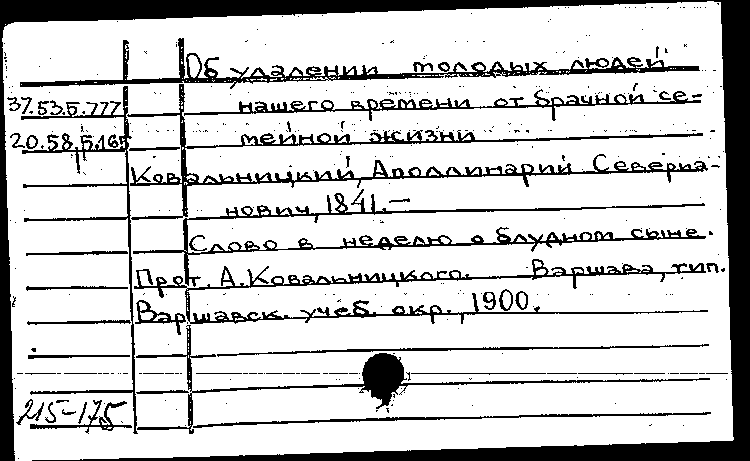 Об удалении молодых людей
37.53.5.777 нашего времени от брачной се-
20.58.5.165 мейной жизни
Ковальницкий, Аполлинарий Севериа-
нович, 1841.—
Слово в неделю о блудном сыне.
Прот. А. Ковальницкого. Варшава, тип.
Варшавск. учеб. окр., 1900.
215-175